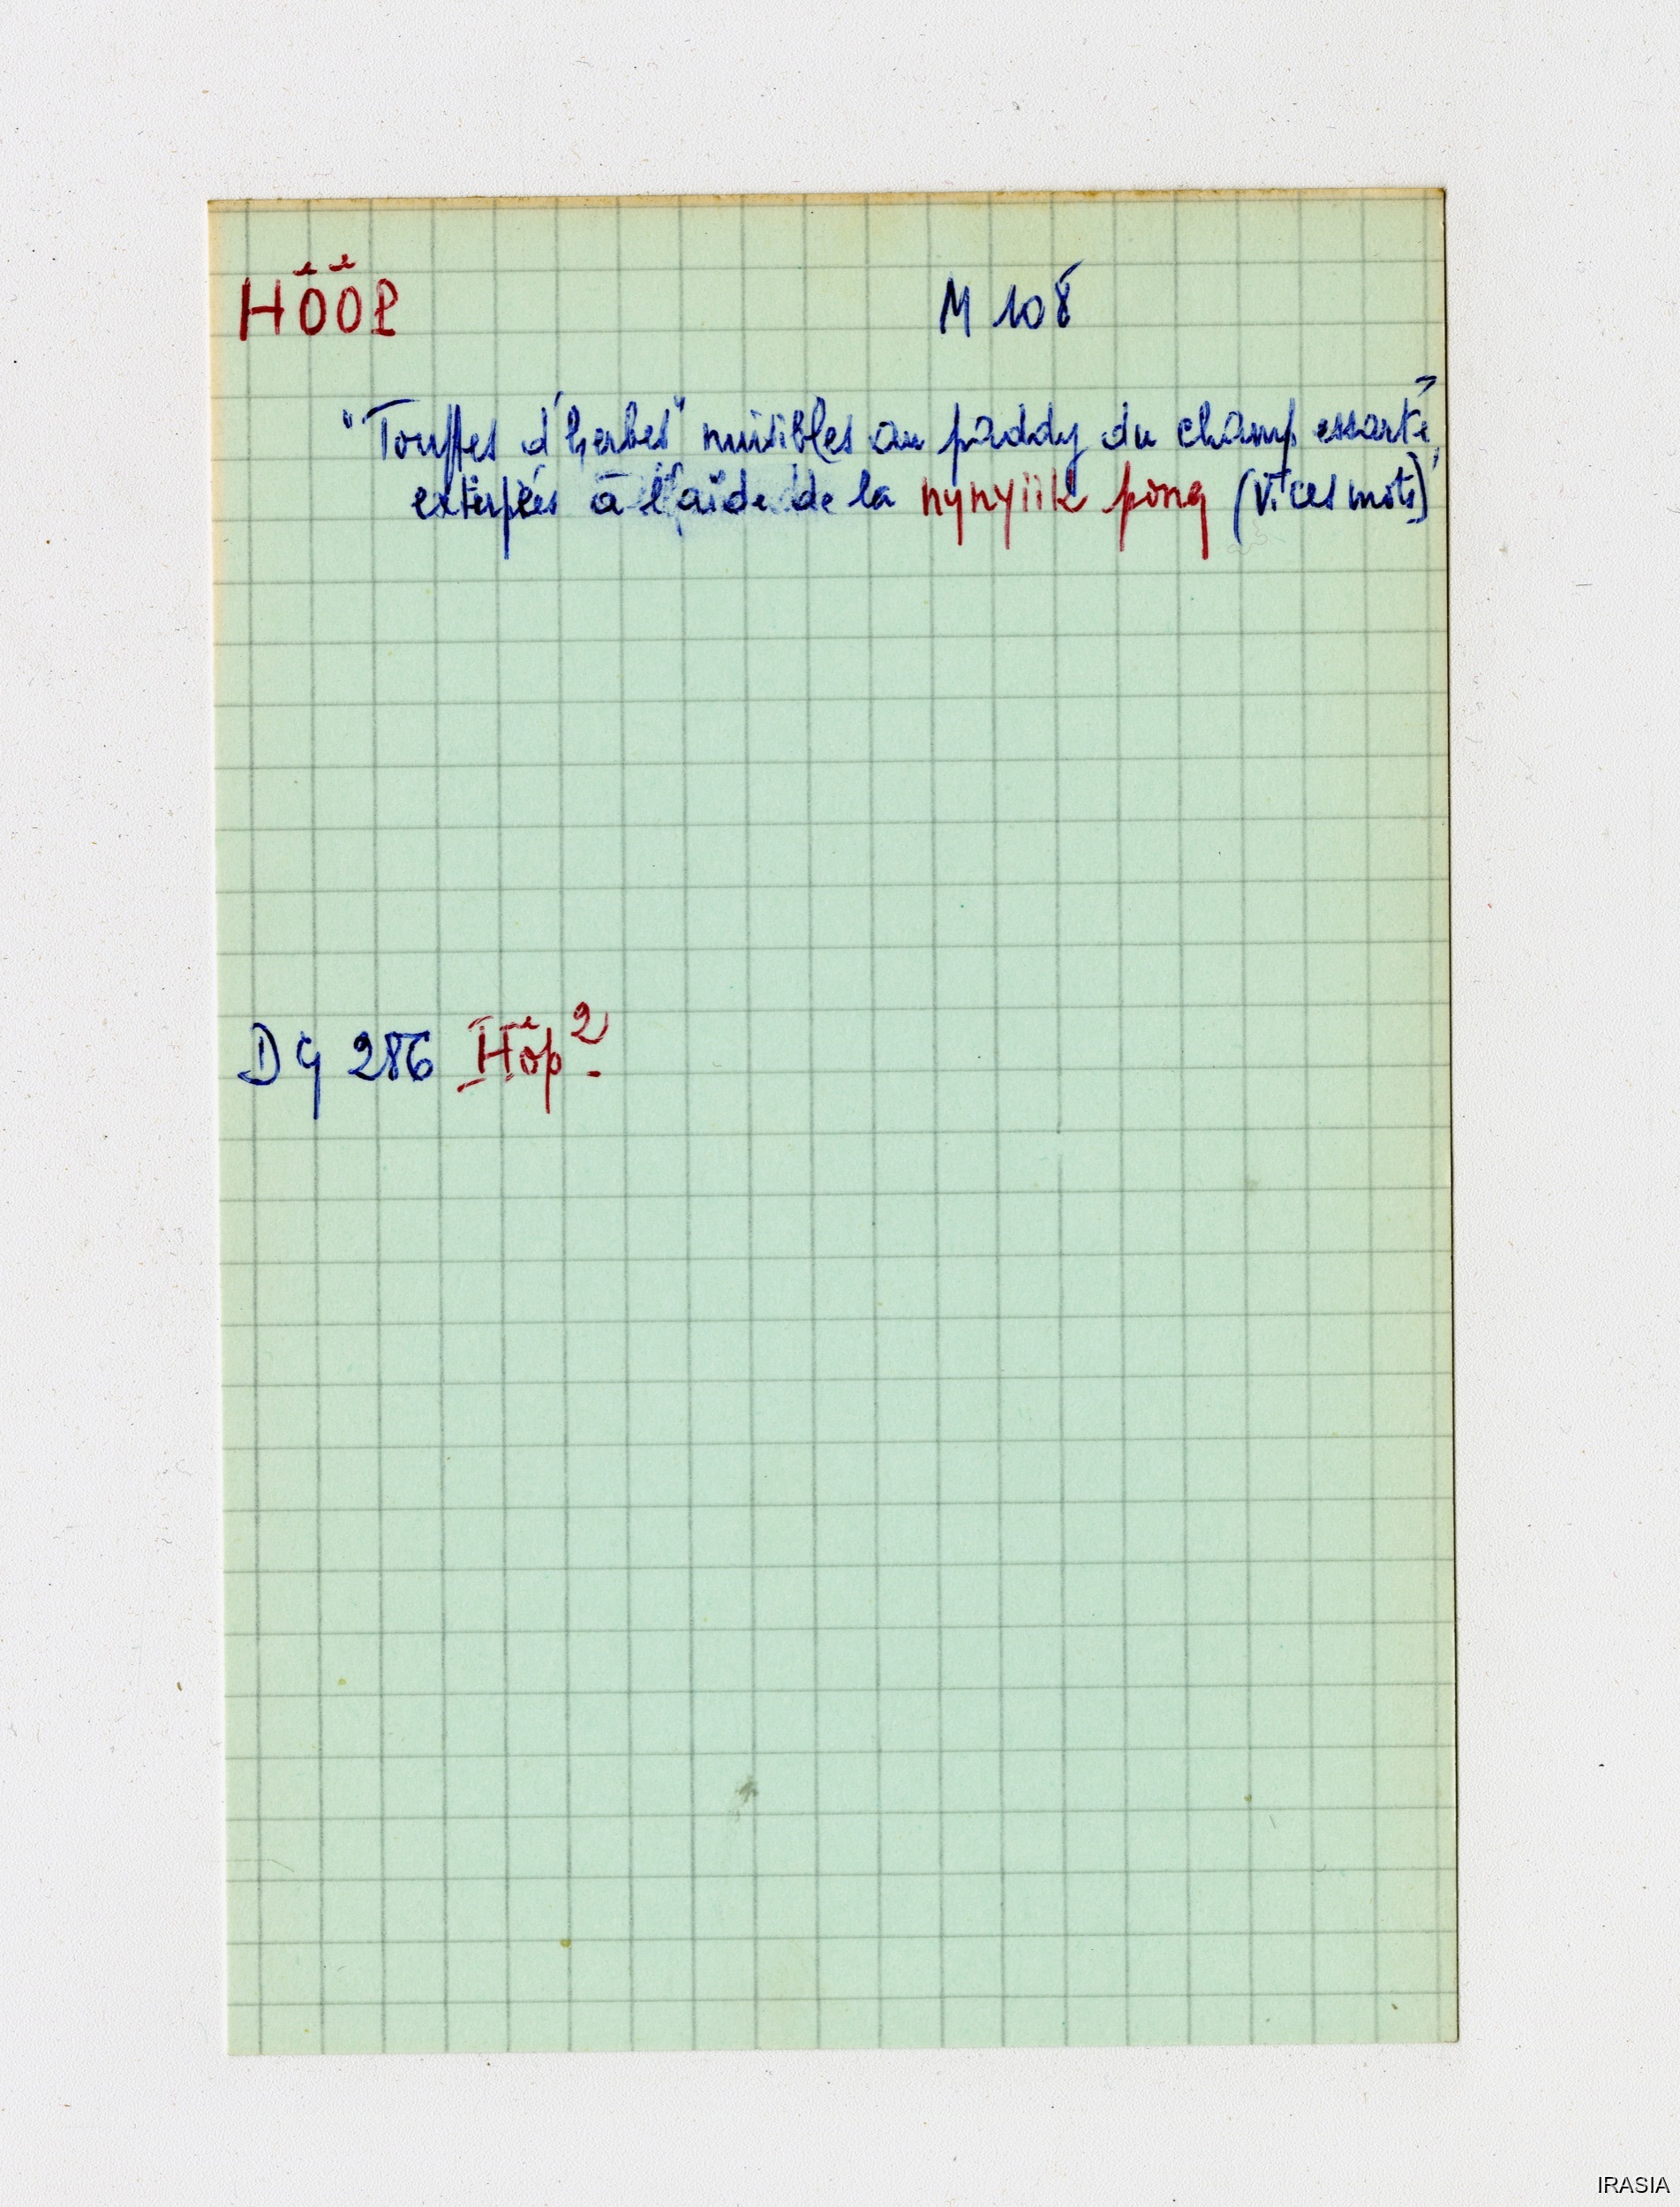 HÖÖP M 108
"Touffes d'herbes" nuisibles au paddy du champ essarté,
extirpées à l'aide de la nynyiik pong (V. ces mots)
DG 286 Höp²
IRASIA